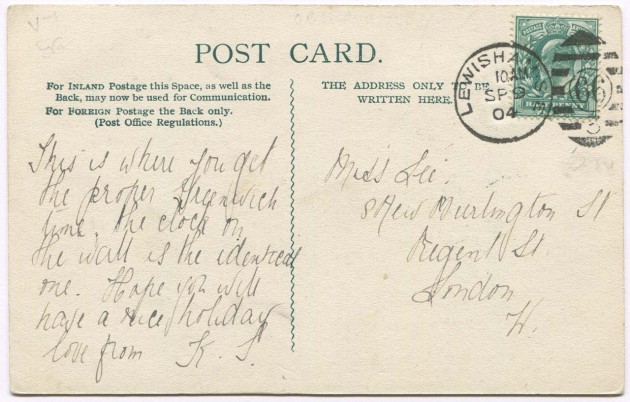 POST CARD.
For INLAND Postage this Space, as well as the
Back, may now be used for Communication.
For FOREIGN Postage the Back only.
(Post Office Regulations.)
THE ADDRESS ONLY BE
WRITTEN HERE
LEWISHAM
10 AM
SP
04
66
HALF PENNY
This is where you get
the proper Greenwich
time. The clock on
the wall is the identical
one. Hope you will
have a nice holiday
love from K. S.
Miss Lee.
8 New Burlington St
Regent St.
London
W.